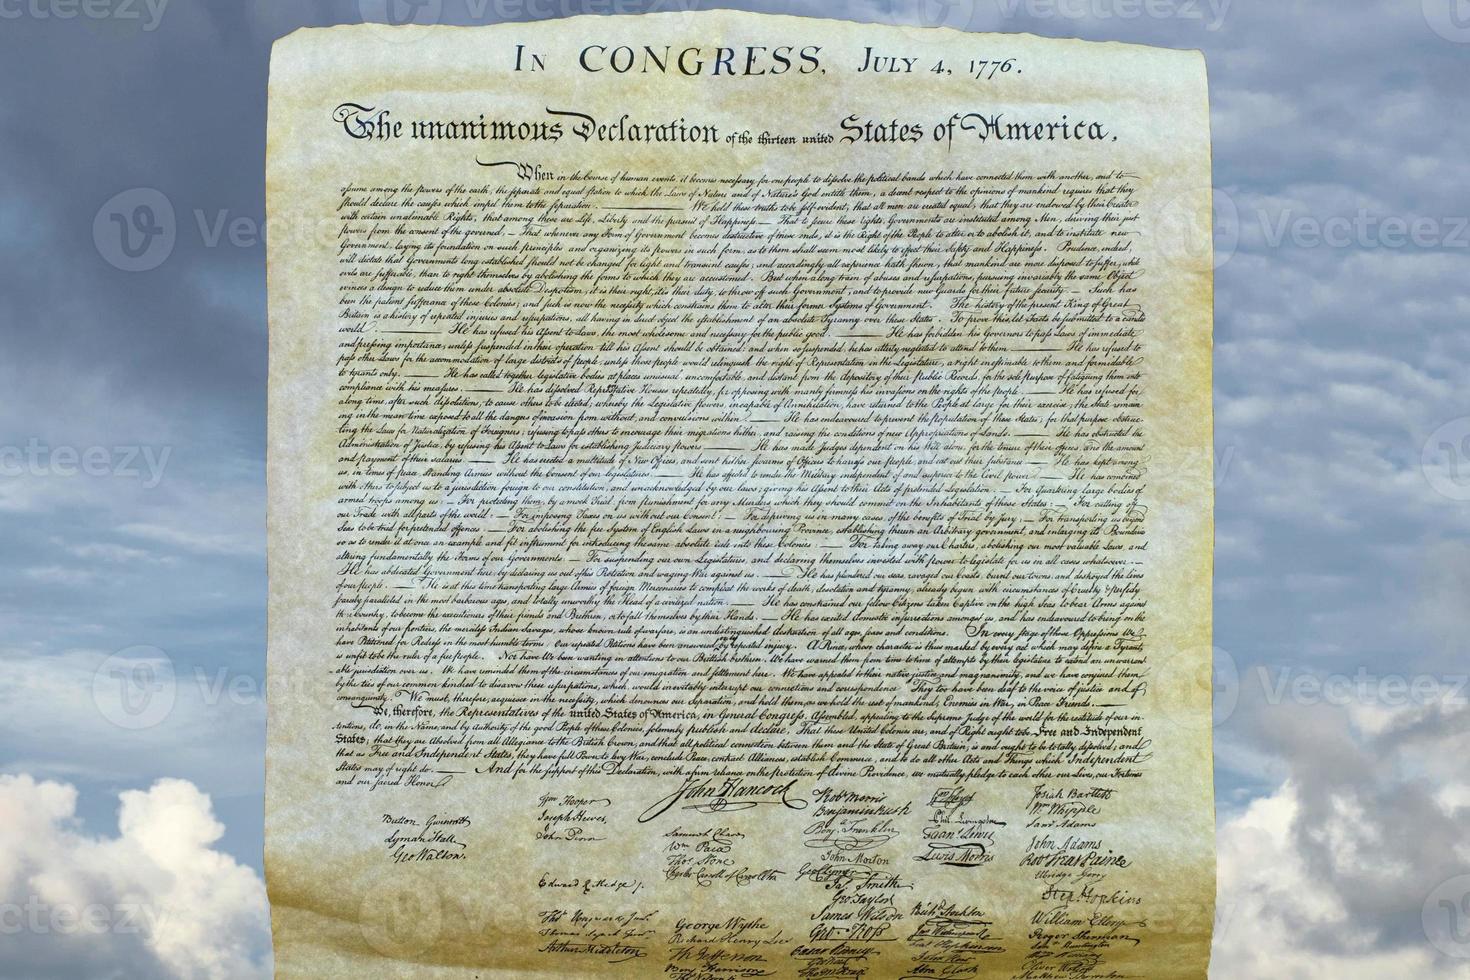 In CONGRESS, July 4, 1776.
The unanimous Declaration of the thirteen united States of America,
When in the Course of human events, it becomes necessary for one people to dissolve the political bands which have connected them with another, and to
assume among the powers of the earth, the separate and equal station to which the Laws of Nature and of Nature's God entitle them, a decent respect to the opinions of mankind requires that they
should declare the causes which impel them to the separation. We hold these truths to be self-evident, that all men are created equal, that they are endowed by their Creator
with certain unalienable Rights, that among these are Life, Liberty and the pursuit of Happiness.— That to secure these rights, Governments are instituted among Men, deriving their just
powers from the consent of the governed,— That whenever any Form of Government becomes destructive of these ends, it is the Right of the People to alter or to abolish it, and to institute new
Government, laying its foundation on such principles and organizing its powers in such form, as to them shall seem most likely to effect their Safety and Happiness. Prudence, indeed,
will dictate that Governments long established should not be changed for light and transient causes; and accordingly all experience hath shewn, that mankind are more disposed to suffer, while
evils are sufferable, than to right themselves by abolishing the forms to which they are accustomed. But when a long train of abuses and usurpations, pursuing invariably the same Object
evinces a design to reduce them under absolute Despotism, it is their right, it is their duty, to throw off such Government, and to provide new Guards for their future security.— Such has
been the patient sufferance of these Colonies; and such is now the necessity which constrains them to alter their former Systems of Government. The history of the present King of Great
Britain is a history of repeated injuries and usurpations, all having in direct object the establishment of an absolute Tyranny over these States. To prove this, let Facts be submitted to a candid
world. He has refused his Assent to Laws, the most wholesome and necessary for the public good. He has forbidden his Governors to pass Laws of immediate
and pressing importance, unless suspended in their operation till his Assent should be obtained; and when so suspended, he has utterly neglected to attend to them. He has refused to
pass other Laws for the accommodation of large districts of people, unless those people would relinquish the right of Representation in the Legislature, a right inestimable to them and formidable
to tyrants only. He has called together legislative bodies at places unusual, uncomfortable, and distant from the depository of their Public Records, for the sole purpose of fatiguing them into
compliance with his measures. He has dissolved Representative Houses repeatedly, for opposing with manly firmness his invasions on the rights of the people. He has refused for
a long time, after such dissolutions, to cause others to be elected; whereby the Legislative powers, incapable of Annihilation, have returned to the People at large for their exercise; the State remain
ing in the mean time exposed to all the dangers of invasion from without, and convulsions within. He has endeavoured to prevent the population of these States; for that purpose obstruc-
ting the Laws for Naturalization of Foreigners; refusing to pass others to encourage their migrations hither, and raising the conditions of new Appropriations of Lands. He has obstructed the
Administration of Justice, by refusing his Assent to Laws for establishing Judiciary powers. He has made Judges dependent on his Will alone, for the tenure of their offices, and the amount
and payment of their salaries. He has erected a multitude of New Offices, and sent hither swarms of Officers to harrass our people, and eat out their substance. He has kept among
us, in times of peace, Standing Armies without the Consent of our legislatures. He has affected to render the Military independent of and superior to the Civil power. He has combined
with others to subject us to a jurisdiction foreign to our constitution, and unacknowledged by our laws; giving his Assent to their Acts of pretended Legislation:— For Quartering large bodies of
armed troops among us:— For protecting them, by a mock Trial, from punishment for any Murders which they should commit on the Inhabitants of these States:— For cutting off
our Trade with all parts of the world:— For imposing Taxes on us without our Consent:— For depriving us in many cases, of the benefits of Trial by Jury:— For transporting us beyond
Seas to be tried for pretended offences:— For abolishing the free System of English Laws in a neighbouring Province, establishing therein an Arbitrary government, and enlarging its Boundaries
so as to render it at once an example and fit instrument for introducing the same absolute rule into these Colonies:— For taking away our Charters, abolishing our most valuable Laws, and
altering fundamentally the Forms of our Governments:— For suspending our own Legislatures, and declaring themselves invested with power to legislate for us in all cases whatsoever.—
He has abdicated Government here, by declaring us out of his Protection and waging War against us. He has plundered our seas, ravaged our Coasts, burnt our towns, and destroyed the lives
of our people. He is at this time transporting large Armies of foreign Mercenaries to compleat the works of death, desolation and tyranny, already begun with circumstances of Cruelty & perfidy
scarcely paralleled in the most barbarous ages, and totally unworthy the Head of a civilized nation. He has constrained our fellow Citizens taken Captive on the high Seas to bear Arms against
their Country, to become the executioners of their friends and Brethren, or to fall themselves by their Hands. He has excited domestic insurrections amongst us, and has endeavoured to bring on the
inhabitants of our frontiers, the merciless Indian Savages, whose known rule of warfare, is an undistinguished destruction of all ages, sexes and conditions. In every stage of these Oppressions We
have Petitioned for Redress in the most humble terms: Our repeated Petitions have been answered only by repeated injury. A Prince, whose character is thus marked by every act which may define a Tyrant,
is unfit to be the ruler of a free people. Nor have We been wanting in attentions to our Brittish brethren. We have warned them from time to time of attempts by their legislature to extend an unwarrant-
able jurisdiction over us. We have reminded them of the circumstances of our emigration and settlement here. We have appealed to their native justice and magnanimity, and we have conjured them
by the ties of our common kindred to disavow these usurpations, which, would inevitably interrupt our connections and correspondence. They too have been deaf to the voice of justice and of
consanguinity. We must, therefore, acquiesce in the necessity, which denounces our Separation, and hold them, as we hold the rest of mankind, Enemies in War, in Peace Friends.
We, therefore, the Representatives of the united States of America, in General Congress, Assembled, appealing to the Supreme Judge of the world for the rectitude of our in-
tentions, do, in the Name, and by Authority of the good People of these Colonies, solemnly publish and declare, That these United Colonies are, and of Right ought to be Free and Independent
States; that they are Absolved from all Allegiance to the British Crown, and that all political connection between them and the State of Great Britain, is and ought to be totally dissolved; and
that as Free and Independent States, they have full Power to levy War, conclude Peace, contract Alliances, establish Commerce, and to do all other Acts and Things which Independent
States may of right do. And for the support of this Declaration, with a firm reliance on the protection of divine Providence, we mutually pledge to each other our Lives, our Fortunes
and our sacred Honor.
Button Gwinnett
Lyman Hall
Geo Walton.
Wm Hooper
Joseph Hewes,
John Penn
Edward Rutledge /.
Thos Heyward Junr.
Thomas Lynch Junr.
Arthur Middleton
John Hancock
Samuel Chase
Wm Paca
Thos Stone
Charles Carroll of Carrollton
George Wythe
Richard Henry Lee
Th Jefferson
Benj Harrison
Robt Morris
Benjamin Rush
Benj. Franklin
John Morton
Geo Clymer
Jas. Smith
Geo Taylor
James Wilson
Geo. Ross
Caesar Rodney
Wm Floyd
Phil. Livingston
Frans. Lewis
Lewis Morris
Richd. Stockton
Jno Witherspoon
Fras. Hopkinson
John Hart
Abra Clark
Josiah Bartlett
Wm Whipple
Saml Adams
John Adams
Robt Treat Paine
Elbridge Gerry
Step Hopkins
William Ellery
Roger Sherman
Saml Huntington
Oliver Wolcott
Matthew Thornton
Vecteezy